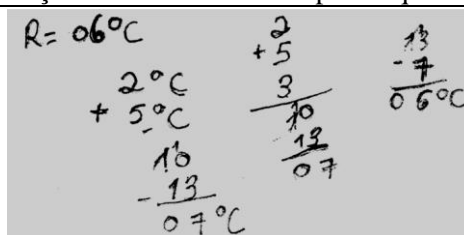 R= 06°C
2°C
+ 5°C
10
- 13
07°C
2
+ 5
3
10
13
07
13
- 7
06°C